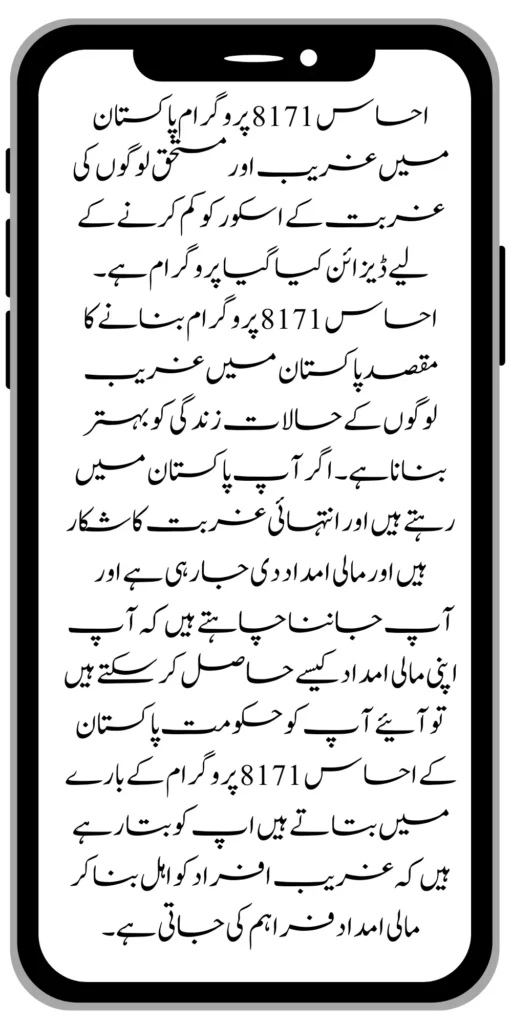 احساس 8171 پروگرام پاکستان
میں غریب اور مستحق لوگوں کی
غربت کے اسکور کو کم کرنے کے
لیے ڈیزائن کیا گیا پروگرام ہے۔
احساس 8171 پروگرام بنانے کا
مقصد پاکستان میں غریب
لوگوں کے حالات زندگی کو بہتر
بنانا ہے۔ اگر آپ پاکستان میں
رہتے ہیں اور انتہائی غربت کا شکار
ہیں اور مالی امداد دی جا رہی ہے اور
آپ جاننا چاہتے ہیں کہ آپ
اپنی مالی امداد کیسے حاصل کر سکتے ہیں
تو آیئے آپ کو حکومت پاکستان
کے احساس 8171 پروگرام کے بارے
میں بتاتے ہیں اپ کو بتا رہے
ہیں کہ غریب افراد کو اہل بنا کر
مالی امداد فراہم کی جاتی ہے۔